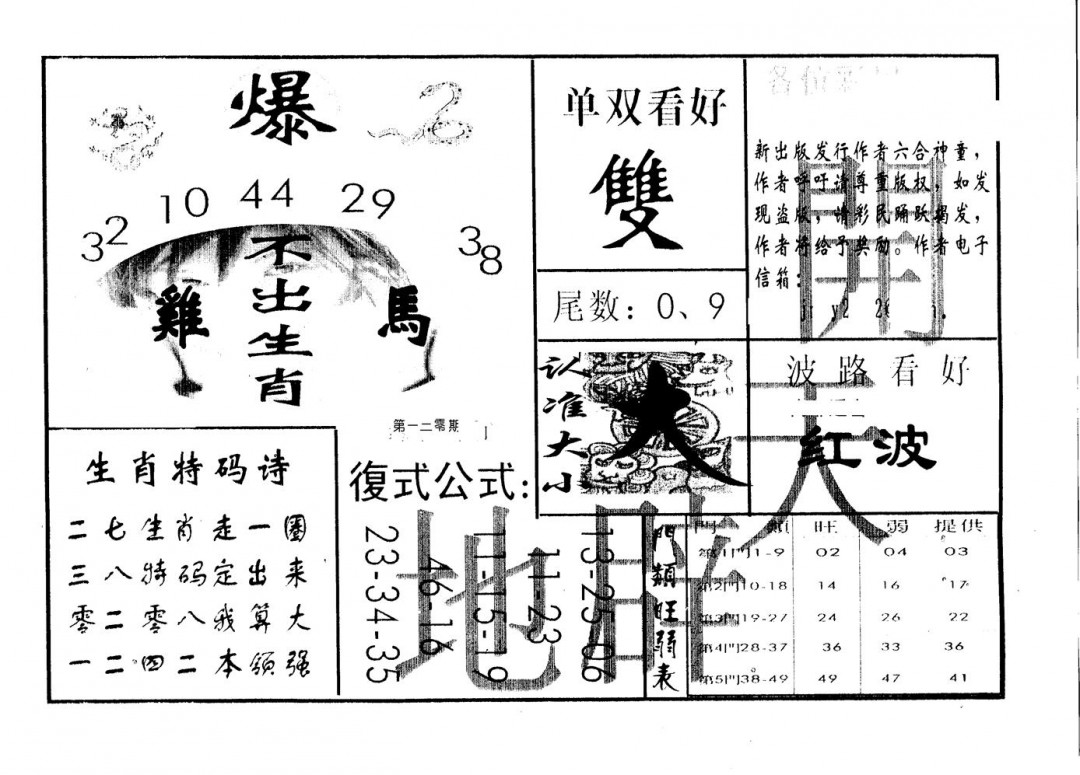 爆
32 10 44 29 38
不出生肖
雞
馬
第一二零期
单双看好
雙
尾数：0、9
认准大小
大
新出版发行作者六合神童，
作者呼吁请尊重版权，如发
现盗版，请彩民踊跃揭发，
作者将给予奖励。作者电子
信箱：
波路看好
红波
生肖特码诗
二七生肖走一圈
三八特码定出来
零二零八我算大
一二四二本领强
復式公式：
23-34-35
46-16
11-15-19
11-23
13-25-06
開
天
地
門類旺弱表
門 類 旺 弱 提供
第1門1-9 02 04 03
第2門10-18 14 16 17
第3門19-27 24 26 22
第4門28-37 36 33 36
第5門38-49 49 47 41